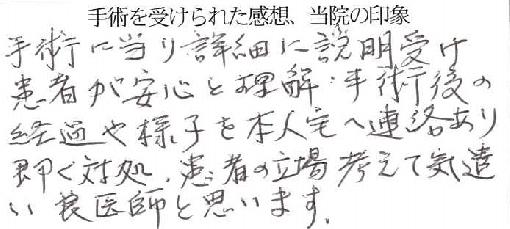 手術を受けられた感想、当院の印象
手術に当り詳細に説明受け
患者が安心と理解・手術後の
経過や様子を本人宅へ連絡あり
即く対処、患者の立場考えて気遣
い良医師と思います。